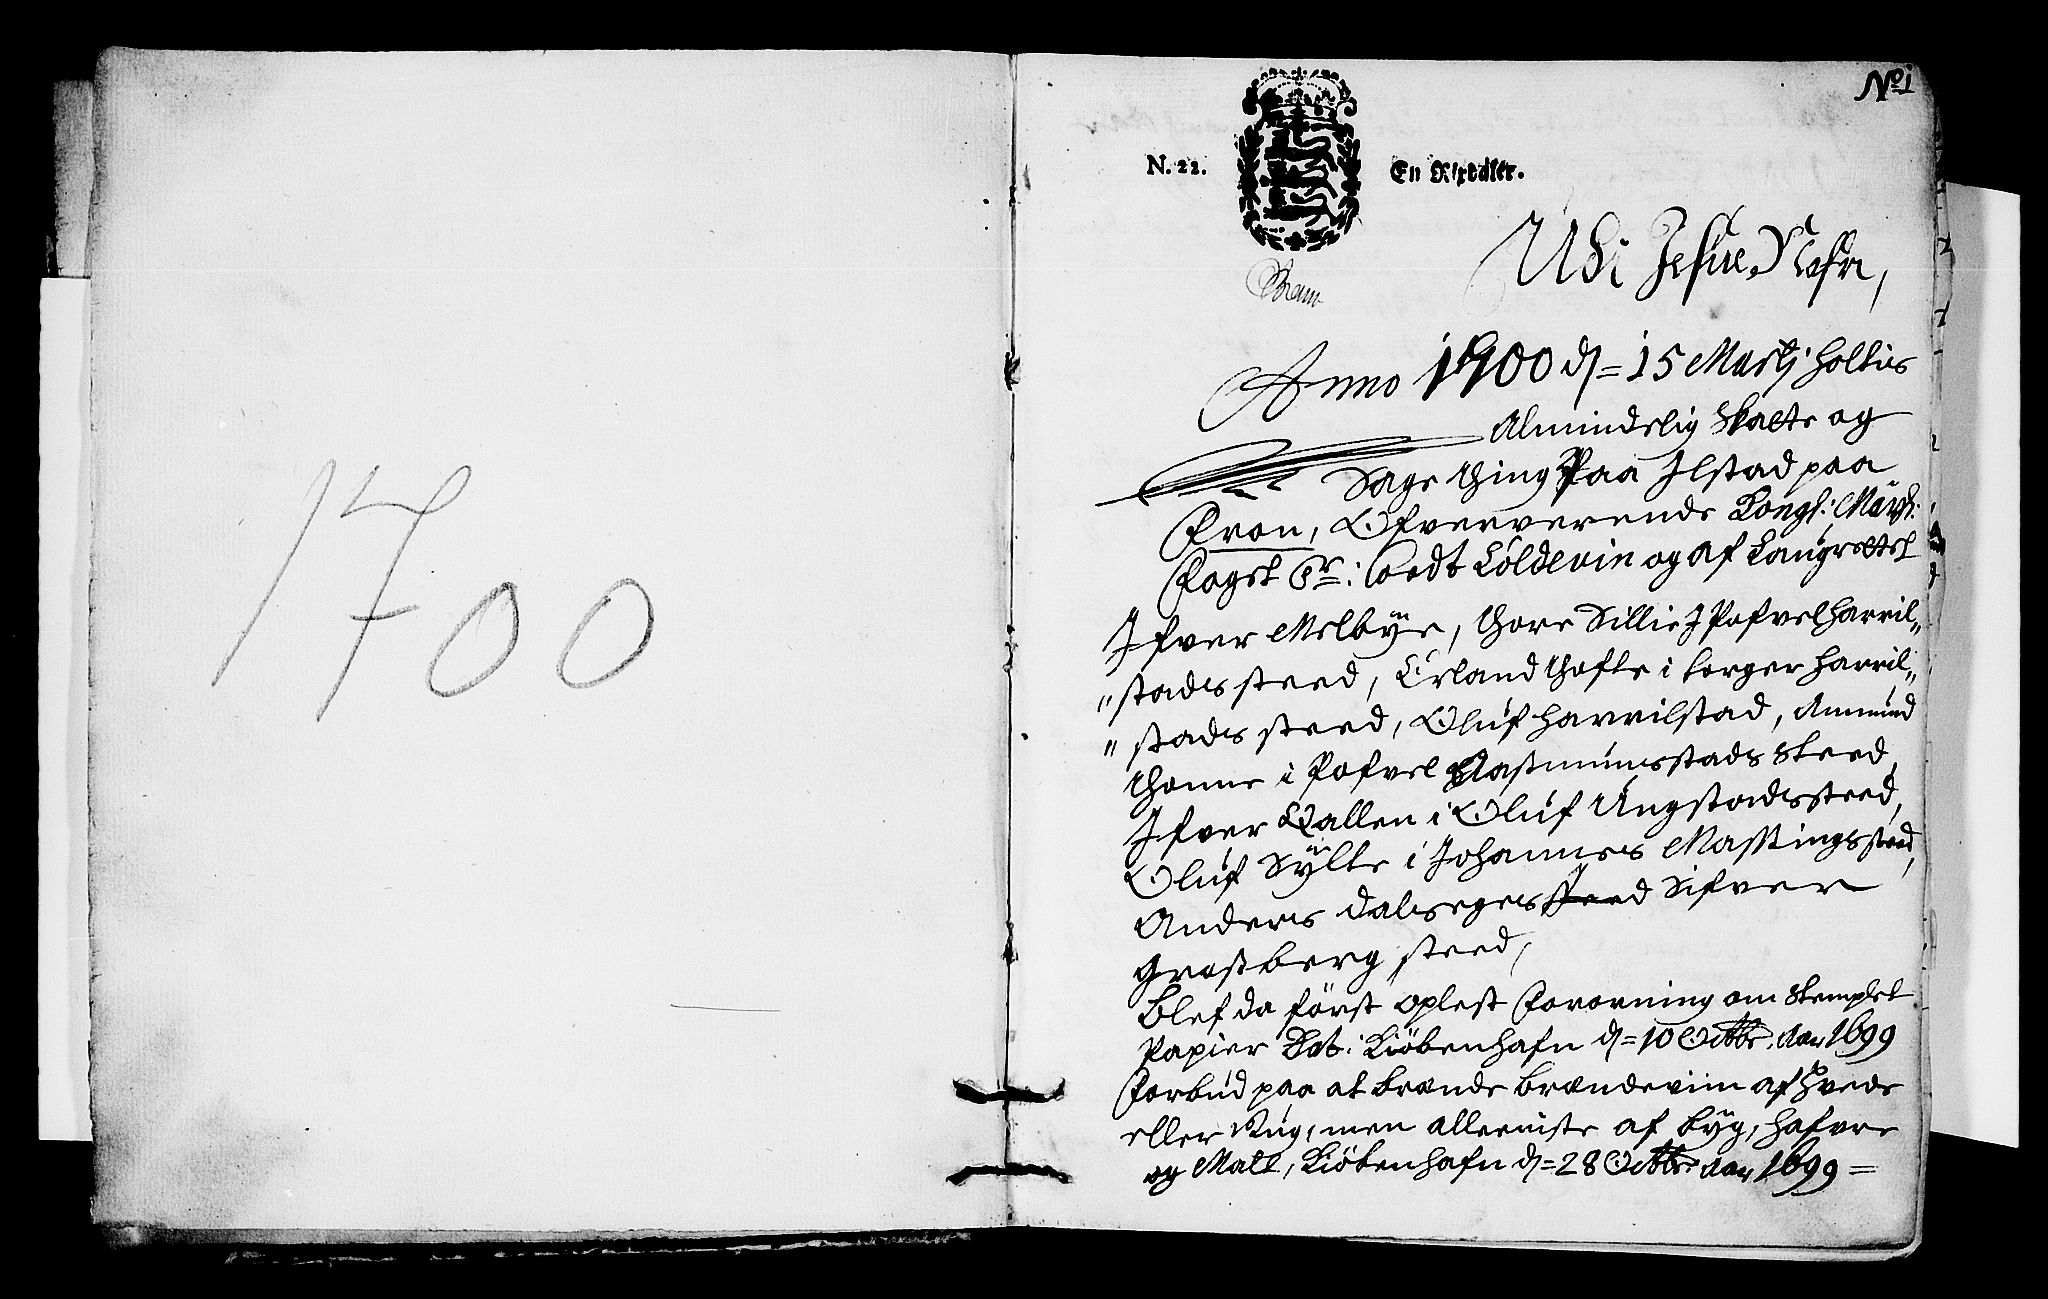 1700
No 1
N. 22. En Rixdaler.
Udi Jesu Nafn,
Anno 1700 d= 15 Martj holtis
Almindelig Skatte og
Sage thing Paa Ilstad paa
Fron, Ofververende Kongl: Mayst:
Fogst Sr: Cordt Coldevin og af Laugrettet
Ifver Melbÿe, Thore Sillie J Pofvel Harril„
„stads steed, Erland Thofte i torger Harril„
„stads steed, Oluf Harrilstad, Ammund
Thonne i Pofvel Rasmunsstads Steed,
Ifver Qallen i Oluf Ungstads steed,
Oluf Sÿlte i Johannes Massings steed,
Anders Dalsegers steed Sifver
Grosberg steed,
Blef da först oplest Fororning om Stemplet
Papier Dat: Kiöbenhafn d= 10 Octbr. aar 1699
Forbud paa at brænde brændeviin af Hvede
eller Rug, men alleeniste af byg, hafvre
og Malt, Kiöbenhafn d= 28 Octbr. aar 1699=